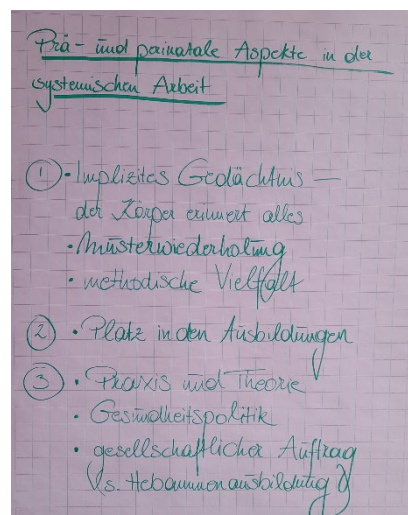 Prä- und perinatale Aspekte in der
systemischen Arbeit
① • Implizites Gedächtnis –
der Körper erinnert alles
• Musterwiederholung
• methodische Vielfalt
② • Platz in den Ausbildungen
③ • Praxis und Theorie
• Gesundheitspolitik
• gesellschaftlicher Auftrag
(s. Hebammenausbildung)